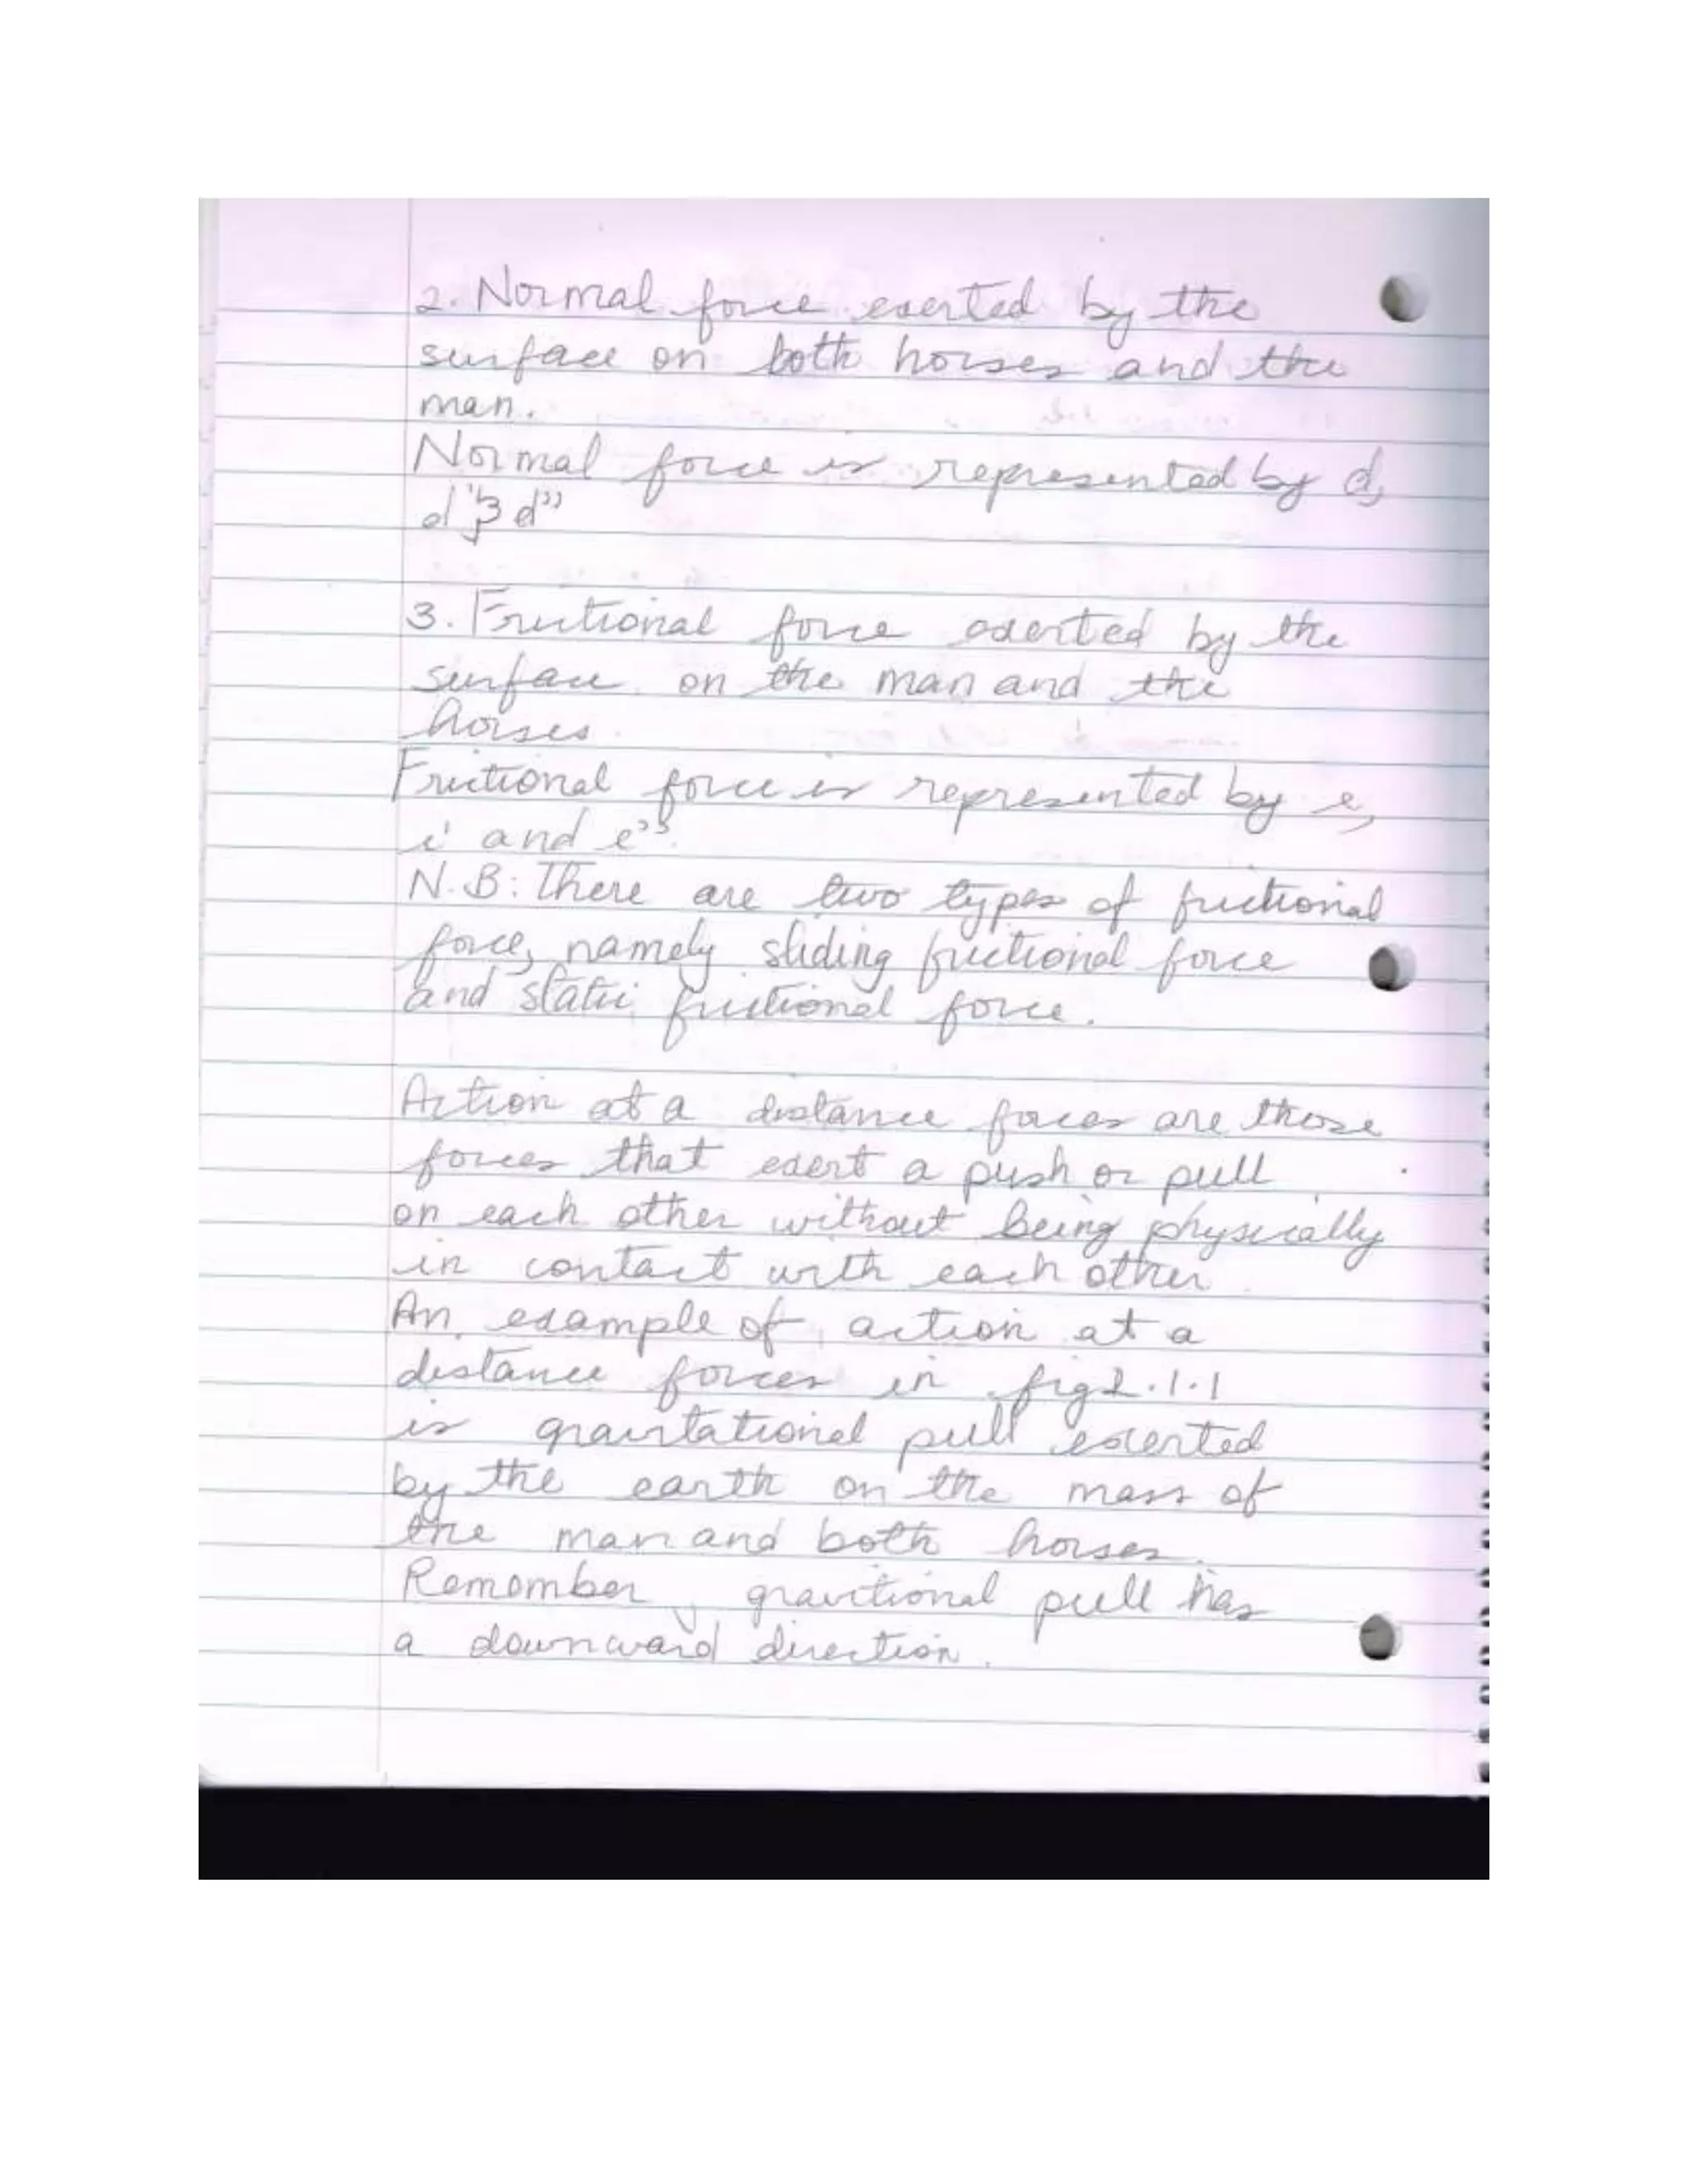 2. Normal force exerted by the
surface on both horses and the
man.
Normal force is represented by d,
d' & d"
3. Frictional force exerted by the
surface on the man and the
horses.
Frictional force is represented by e,
e' and e".
N.B: There are two types of frictional
force, namely sliding frictional force
and static frictional force.
Action at a distance forces are those
forces that exert a push or pull
on each other without being physically
in contact with each other.
An example of action at a
distance forces in fig 2.1.1
is gravitational pull exerted
by the earth on the mass of
the man and both horses.
Remember, gravitional pull has
a downward direction.